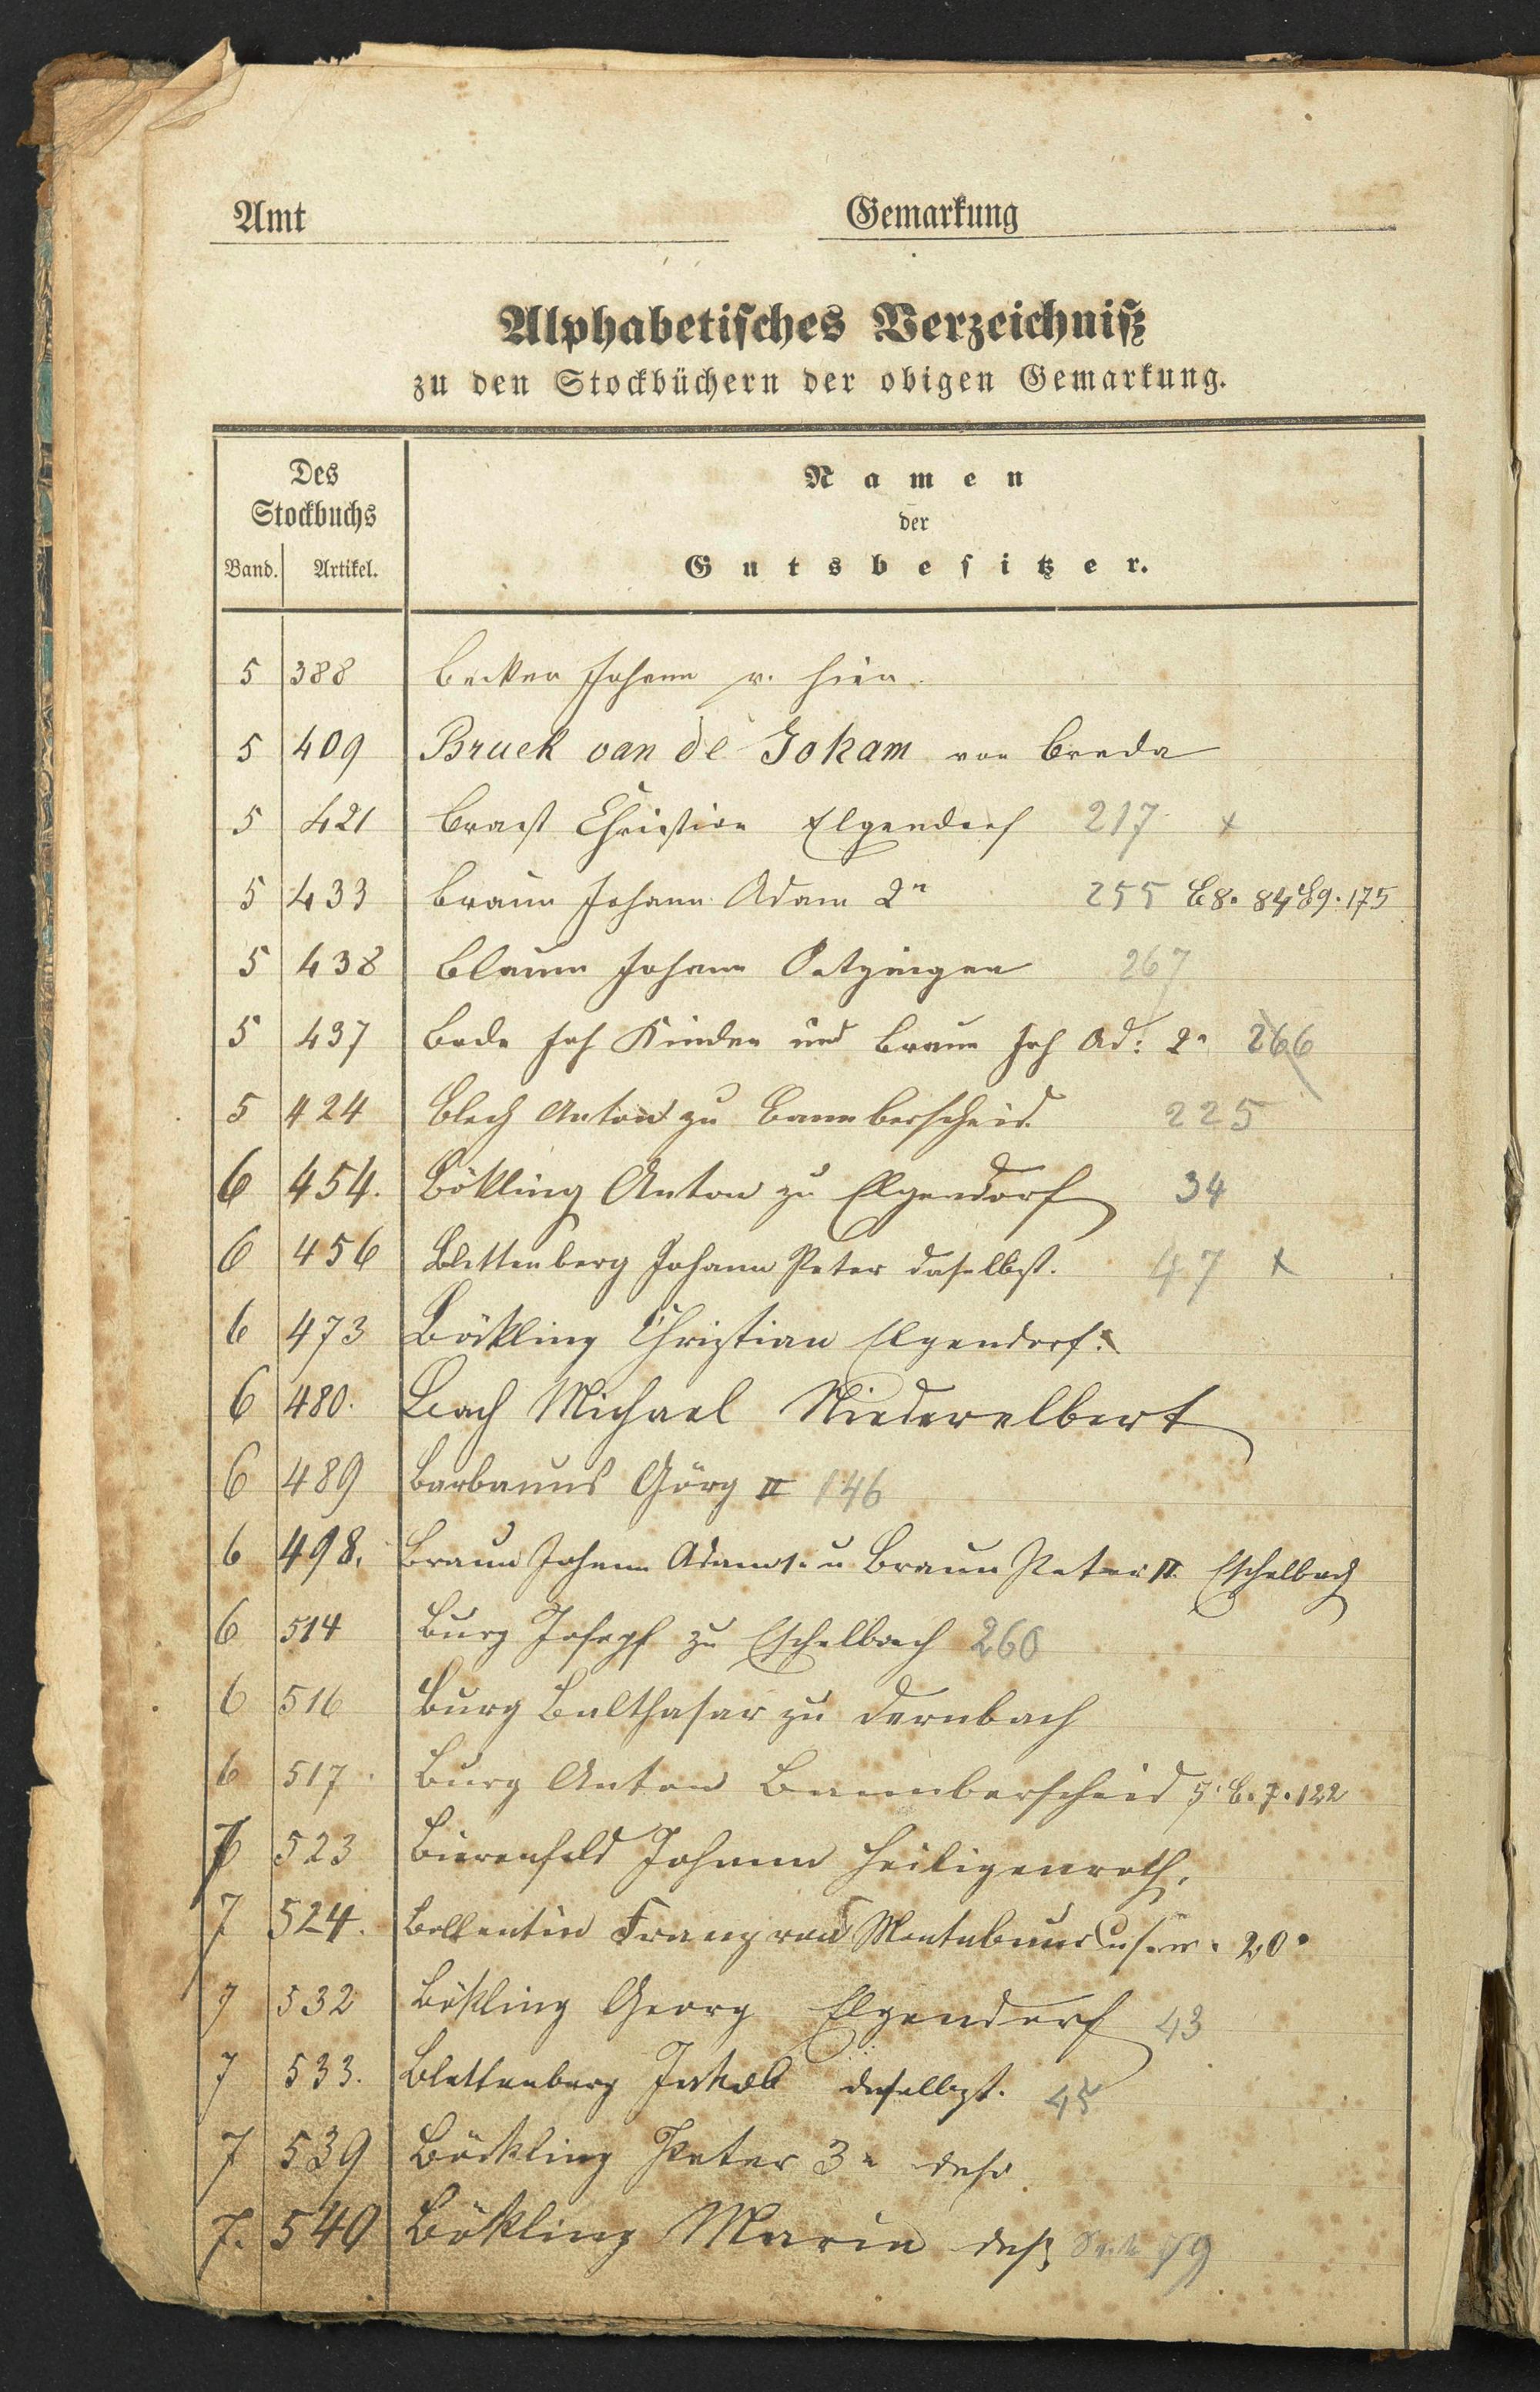 Amt Gemarkung
Alphabetisches Verzeichniß
zu den Stockbüchern der obigen Gemarkung.
Des
Stockbuchs
Namen
der
Gutsbesitzer.
Band. Artikel.
5 388 Becker Johann v. hier
5 409 Bruek van de Jokam von Breda
5 421 Christian Elgendorf 217 x
5 433 Braun Johann Adam 2r 255 B8. 84 B9. 175
5 438 Blaum Johann Oetzingen 267
5 437 Bode Joh Kinder und Braun Joh Ad: 2r 266
5 424 Blech Anton zu Bannberscheid 225
6 454. Bökling Anton zu Elgendorf 34
6 456 Blettenberg Johann Peter daselbst. 47 x
6 473 Böckling Christian Elgendorf.
6 480. Bach Michael Niederelbert
6 489 Barbanus Görg II 146
6 498. Braun Johann Adam 1. u Braun Peter II Eschelbach
6 514 Burg Joseph zu Eschelbach 260
6 516 Burg Balthasar zu Dernbach
6 517. Burg Anton Bannberscheid B. 7. 122
7 523 Bierenfeld Johann Heiligenroth,
7 524. Bellentin Franz von Montabaur 20.
7 532 Bökling Georg Elgendorf 43
7 533. Blettenberg Jakob daselbst. 45
7 539 Böckling Peter 3r
7. 540 Bökling Maria das 59